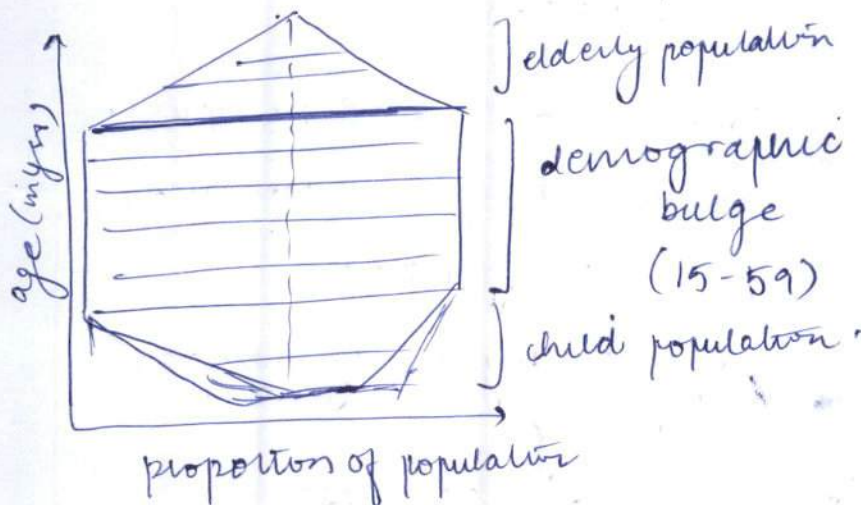 elderly population
age (in yrs)
demographic
bulge
(15-59)
child population.
proportion of population